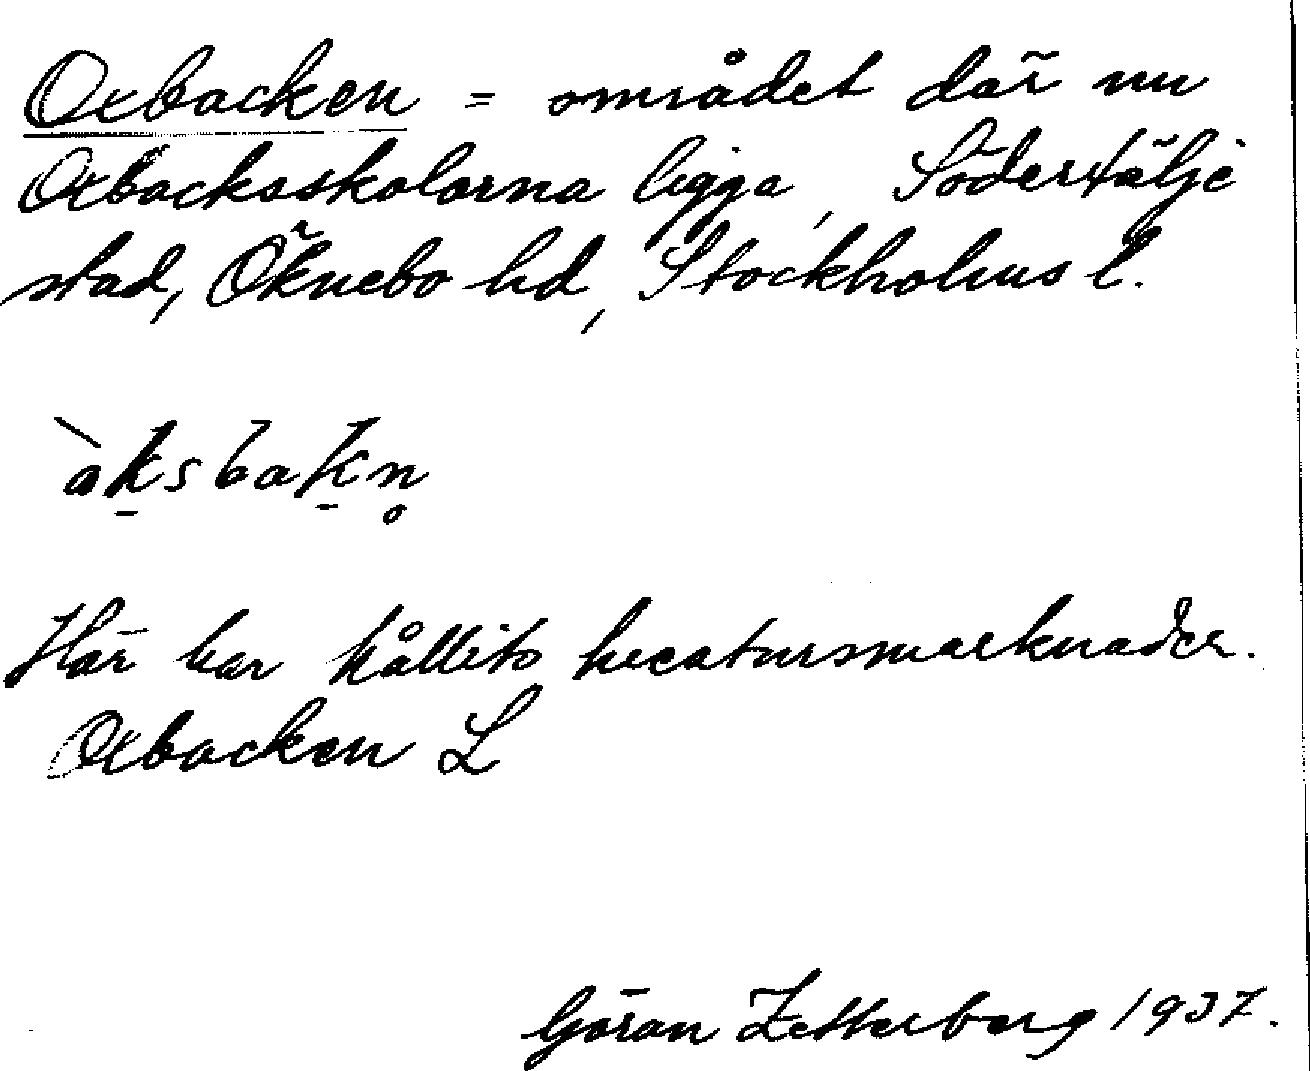 Oxbacken = området där nu
Oxbacksskolorna ligga, Södertälje
stad, Öknebo hd, Stockholms l.
òk̠sbak̠n̥
Här har hållits kreatursmarknader.
Oxbacken L
Göran Zetterberg 1937.